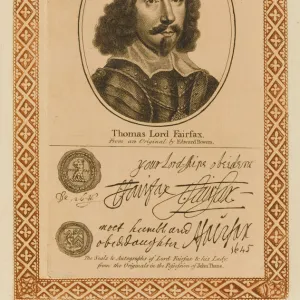 Thomas Lord Fairfax.
From an Original by Edward Bower.
your Lordships obedient
Fairfax Fairfax
most humbl and
obed daughter AFairfax
1645
The Seals & Autographs of Lord Fairfax & his Lady
from the Originals in the Possession of John Thane.